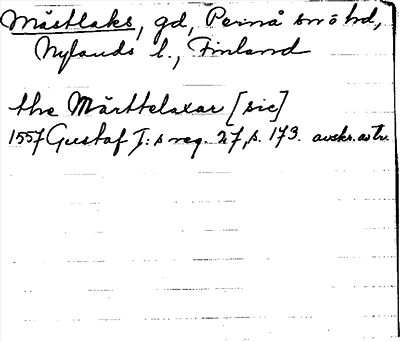 Måstlaks, gd, Pernå sn o hd,
Nylands l., Finland
the Mårttelaxar [sic]
1557 Gustaf I:s reg. 27, s. 173. avskr. av tr.